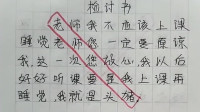 检讨书
老师我不应该上课
睡觉老师您一定要原谅
我这一次您放心我以后
好好听课要是我上课再
睡觉我就是头猪